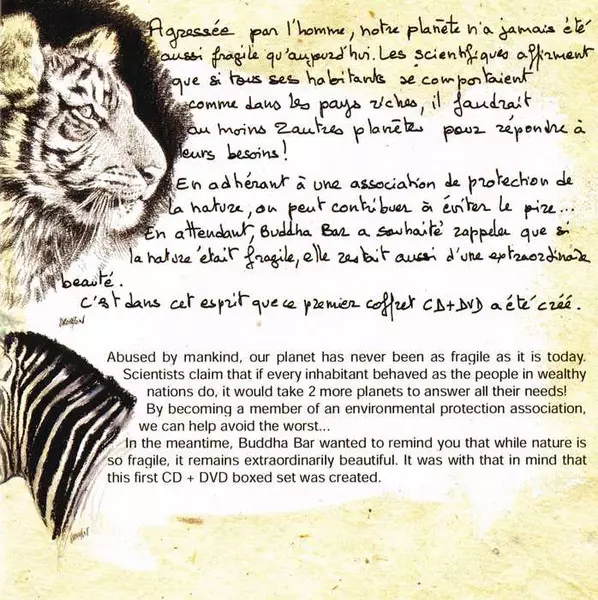 Agressée par l'homme, notre planète n'a jamais été
aussi fragile qu'aujourd'hui. Les scientifiques affirment
que si tous ses habitants se comportaient
comme dans les pays riches, il faudrait
au moins 2 autres planètes pour répondre à
leurs besoins !
En adhérant à une association de protection de
la nature, on peut contribuer à éviter le pire...
En attendant, Buddha Bar a souhaité rappeler que si
la nature était fragile, elle restait aussi d'une extraordinaire
beauté.
C'est dans cet esprit que ce premier coffret CD+DVD a été créé.
Abused by mankind, our planet has never been as fragile as it is today.
Scientists claim that if every inhabitant behaved as the people in wealthy
nations do, it would take 2 more planets to answer all their needs!
By becoming a member of an environmental protection association,
we can help avoid the worst...
In the meantime, Buddha Bar wanted to remind you that while nature is
so fragile, it remains extraordinarily beautiful. It was with that in mind that
this first CD + DVD boxed set was created.